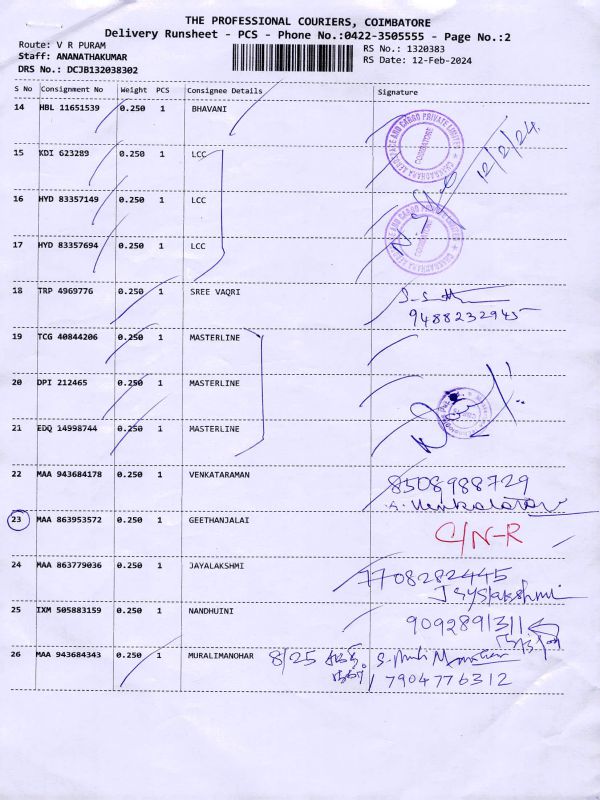 THE PROFESSIONAL COURIERS, COIMBATORE
Delivery Runsheet - PCS - Phone No.:0422-3505555 - Page No.:2
Route: V R PURAM
RS No.: 1320383
Staff: ANANATHAKUMAR
RS Date: 12-Feb-2024
DRS No.: DCJB132038302
S No Consignment No Weight PCS Consignee Details Signature
14 HBL 11651539 0.250 1 BHAVANI
12/2/24
15 KDI 623289 0.250 1 LCC
16 HYD 83357149 0.250 1 LCC
17 HYD 83357694 0.250 1 LCC
18 TRP 4969776 0.250 1 SREE VAQRI
9488232945
19 TCG 40844206 0.250 1 MASTERLINE
20 DPI 212465 0.250 1 MASTERLINE
21 EDQ 14998744 0.250 1 MASTERLINE
22 MAA 943684178 0.250 1 VENKATARAMAN 8508988729
23 MAA 863953572 0.250 1 GEETHANJALAI C/N-R
24 MAA 863779036 0.250 1 JAYALAKSHMI 7708282445
Jayalakshmi
25 IXM 505883159 0.250 1 NANDHUINI 9092891311
26 MAA 943684343 0.250 1 MURALIMANOHAR 8/25
7904776312